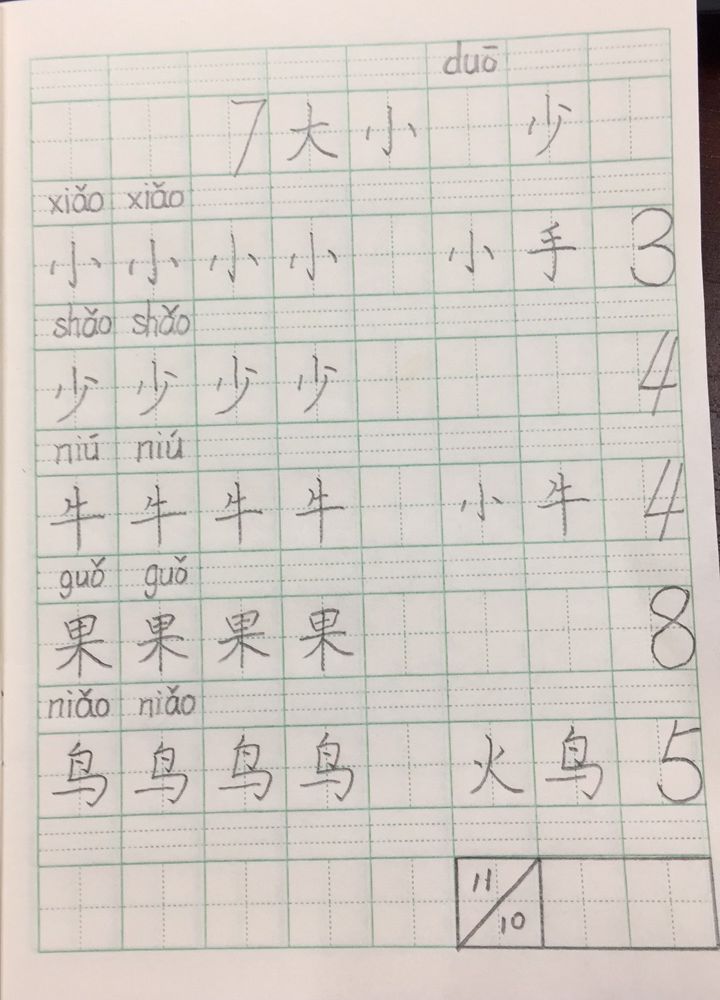 duō
7 大 小 少
xiǎo xiǎo
小 小 小 小 小 手 3
shǎo shǎo
少 少 少 少 4
niú niú
牛 牛 牛 牛 小 牛 4
guǒ guǒ
果 果 果 果 8
niǎo niǎo
鸟 鸟 鸟 鸟 火 鸟 5
11/10